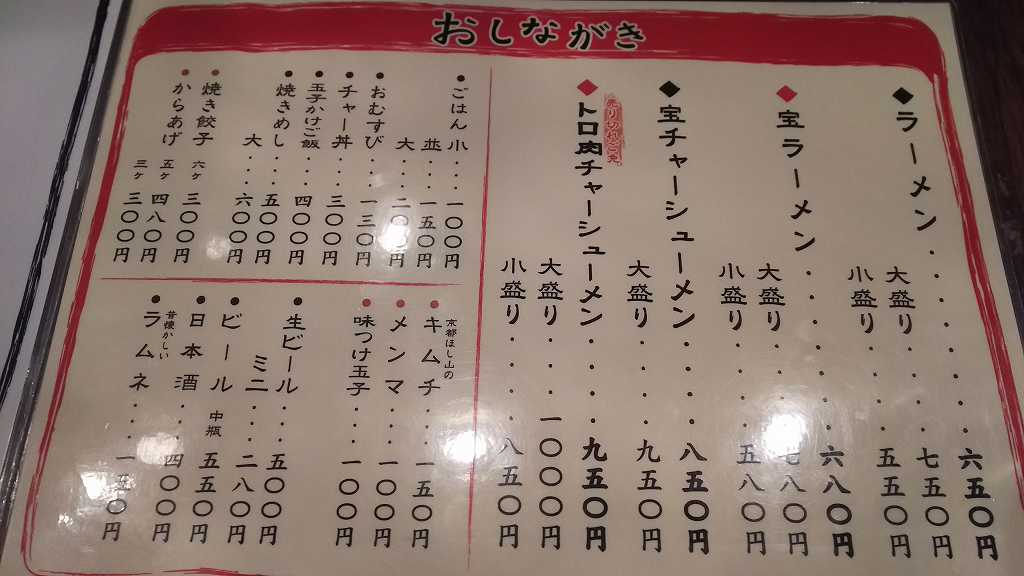 おしながき
◆ラーメン・・・・・・六五〇円
大盛り・・・七五〇円
小盛り・・・五五〇円
◆宝ラーメン・・・・・六八〇円
大盛り・・・七八〇円
小盛り・・・五八〇円
◆宝チャーシューメン・・・八五〇円
大盛り・・・九五〇円
売り切れごめん
◆トロ肉チャーシューメン・・・九五〇円
大盛り・・・一〇〇〇円
小盛り・・・八五〇円
●ごはん 小・・・一〇〇円
並・・・一五〇円
大・・・二〇〇円
●おむすび・・・一三〇円
●チャー丼・・・三〇〇円
●玉子かけご飯・・・四〇〇円
●焼きめし・・・五〇〇円
大・・・六〇〇円
●焼き餃子 六ヶ 三〇〇円
●からあげ 五ヶ 四八〇円
三ヶ 三〇〇円
京都ほし山の
●キムチ・・・一五〇円
●メンマ・・・一〇〇円
●味つけ玉子・・・一〇〇円
●生ビール・・・五〇〇円
ミニ・・・二八〇円
●ビール 中瓶 五五〇円
●日本酒・・・四〇〇円
昔懐かしい
●ラムネ・・・一五〇円